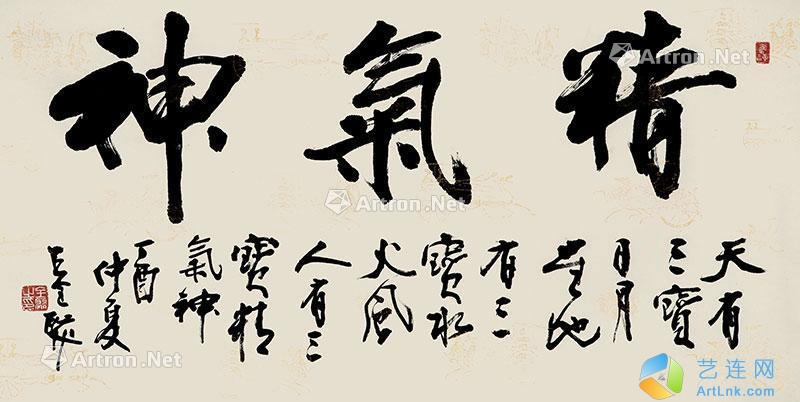 精氣神
天有
三寶
日月
星地
有三
寶水
火風
人有三
寶精
氣神
丁酉
仲夏
Artron.Net
Artron.Net
Artron.Net
Artron.Net
艺连网
ArtLnk.com